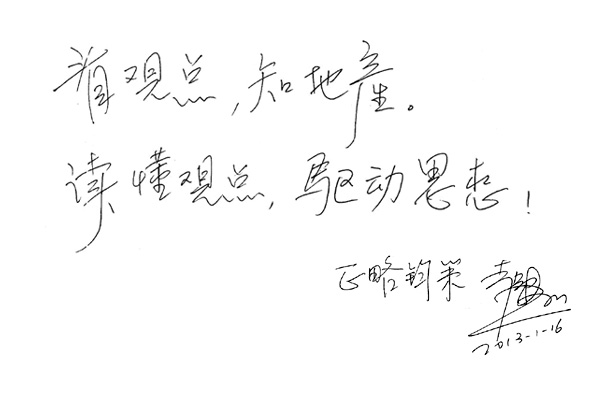 看观点，知地产。
读懂观点，驱动思想！
正略钧策
2013-1-16